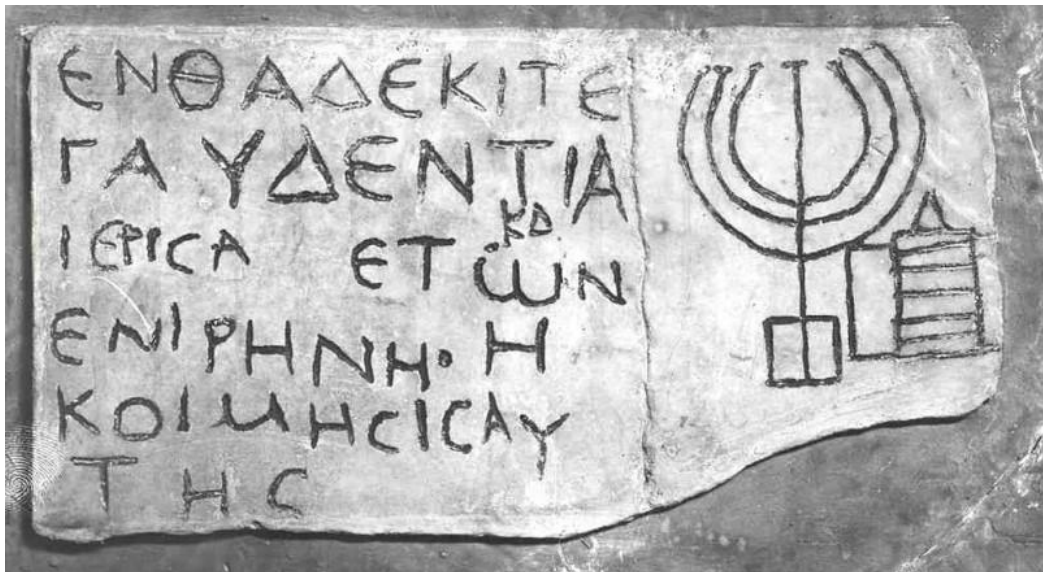 ΕΝΘΑΔΕΚΙΤΕ
ΓΑΥΔΕΝΤΙΑ
ΙΕΡΙCΑ ΕΤ ΚΔ ωΝ
ΕΝΙΡΗΝΗ· Η
ΚΟΙΜΗCΙCΑΥ
ΤΗC